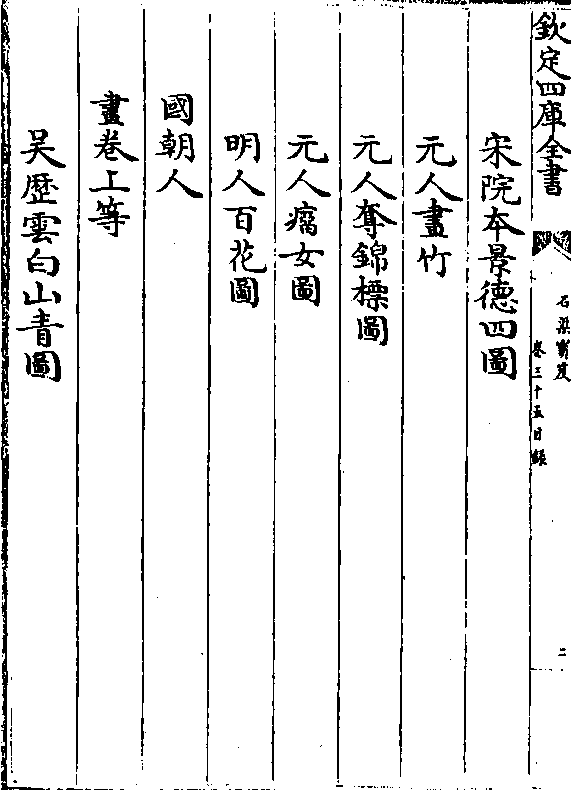 欽定四庫全書
石渠寶笈
卷三十五目録
二
宋院本景德四圖
元人畫竹
元人奪錦標圖
元人瘤女圖
明人百花圖
國朝人
畫卷上等
吴歷雲白山青圖